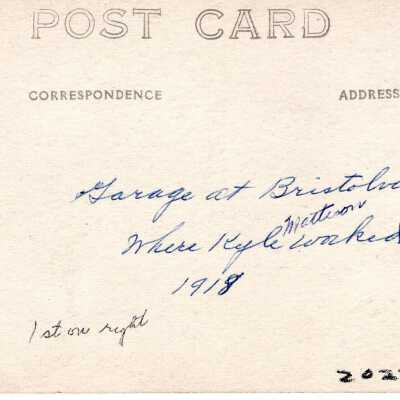 POST CARD
CORRESPONDENCE ADDRESS
Garage at Bristolv
Matteson
Where Kyle worked
1918
1st on right
202